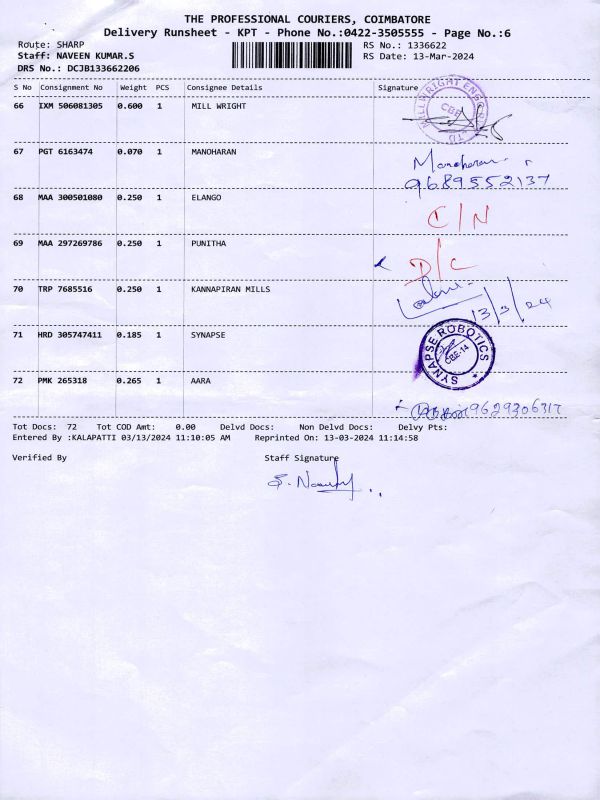 THE PROFESSIONAL COURIERS, COIMBATORE
Delivery Runsheet - KPT - Phone No.:0422-3505555 - Page No.:6
Route: SHARP
RS No.: 1336622
Staff: NAVEEN KUMAR.S
RS Date: 13-Mar-2024
DRS No.: DCJB133662206
S No Consignment No Weight PCS Consignee Details Signature
66 IXM 506081305 0.600 1 MILL WRIGHT
CBE
67 PGT 6163474 0.070 1 MANOHARAN
Manoharan
9689552137
68 MAA 300501080 0.250 1 ELANGO
C/N
69 MAA 297269786 0.250 1 PUNITHA
D/C
70 TRP 7685516 0.250 1 KANNAPIRAN MILLS
13/3/24
71 HRD 305747411 0.185 1 SYNAPSE
SYNAPSE ROBOTICS
CBE-14
72 PMK 265318 0.265 1 AARA
9629306317
Tot Docs: 72 Tot COD Amt: 0.00 Delvd Docs: Non Delvd Docs: Delvy Pts:
Entered By :KALAPATTI 03/13/2024 11:10:05 AM Reprinted On: 13-03-2024 11:14:58
Verified By Staff Signature